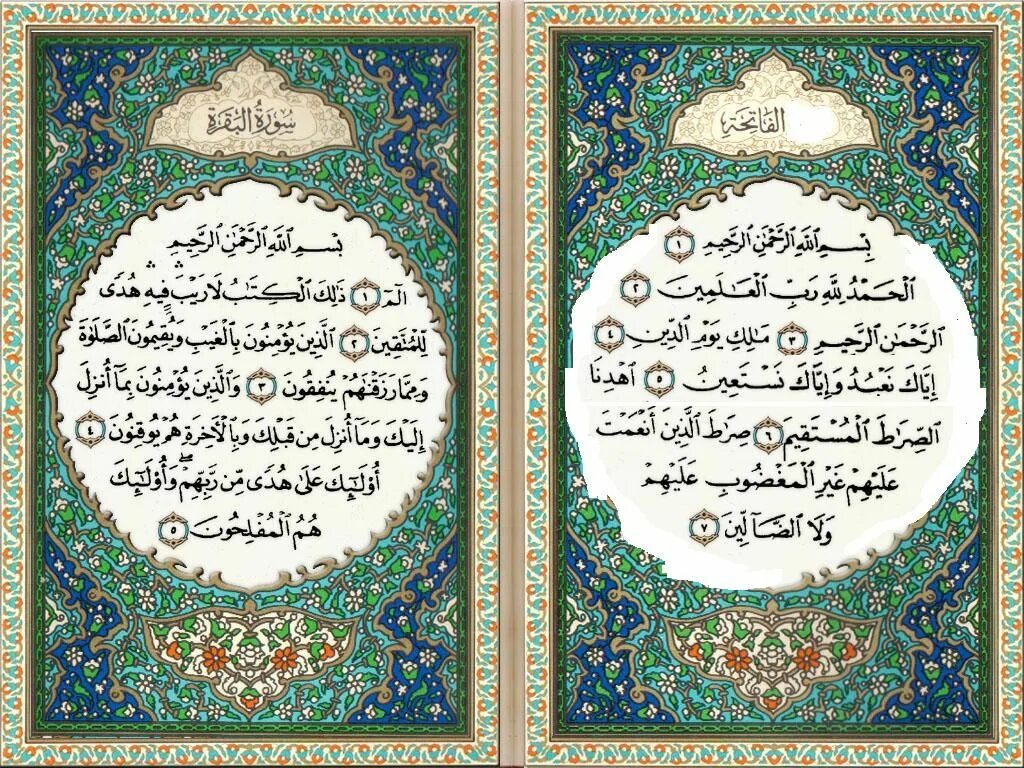 الفاتحة
بِسْمِ ٱللَّهِ ٱلرَّحْمَٰنِ ٱلرَّحِيمِ ١
ٱلْحَمْدُ لِلَّهِ رَبِّ ٱلْعَٰلَمِينَ ٢
ٱلرَّحْمَٰنِ ٱلرَّحِيمِ ٣ مَٰلِكِ يَوْمِ ٱلدِّينِ ٤
إِيَّاكَ نَعْبُدُ وَإِيَّاكَ نَسْتَعِينُ ٥ ٱهْدِنَا
ٱلصِّرَٰطَ ٱلْمُسْتَقِيمَ ٦ صِرَٰطَ ٱلَّذِينَ أَنْعَمْتَ
عَلَيْهِمْ غَيْرِ ٱلْمَغْضُوبِ عَلَيْهِمْ
وَلَا ٱلضَّآلِّينَ ٧
سُورَةُ البَقَرَة
بِسْمِ ٱللَّهِ ٱلرَّحْمَٰنِ ٱلرَّحِيمِ
الٓمٓ ١ ذَٰلِكَ ٱلْكِتَٰبُ لَا رَيْبَ ۛ فِيهِ ۛ هُدًى
لِّلْمُتَّقِينَ ٢ ٱلَّذِينَ يُؤْمِنُونَ بِٱلْغَيْبِ وَيُقِيمُونَ ٱلصَّلَوٰةَ
وَمِمَّا رَزَقْنَٰهُمْ يُنفِقُونَ ٣ وَٱلَّذِينَ يُؤْمِنُونَ بِمَآ أُنزِلَ
إِلَيْكَ وَمَآ أُنزِلَ مِن قَبْلِكَ وَبِٱلْءَاخِرَةِ هُمْ يُوقِنُونَ ٤
أُو۟لَٰٓئِكَ عَلَىٰ هُدًى مِّن رَّبِّهِمْ ۖ وَأُو۟لَٰٓئِكَ
هُمُ ٱلْمُفْلِحُونَ ٥